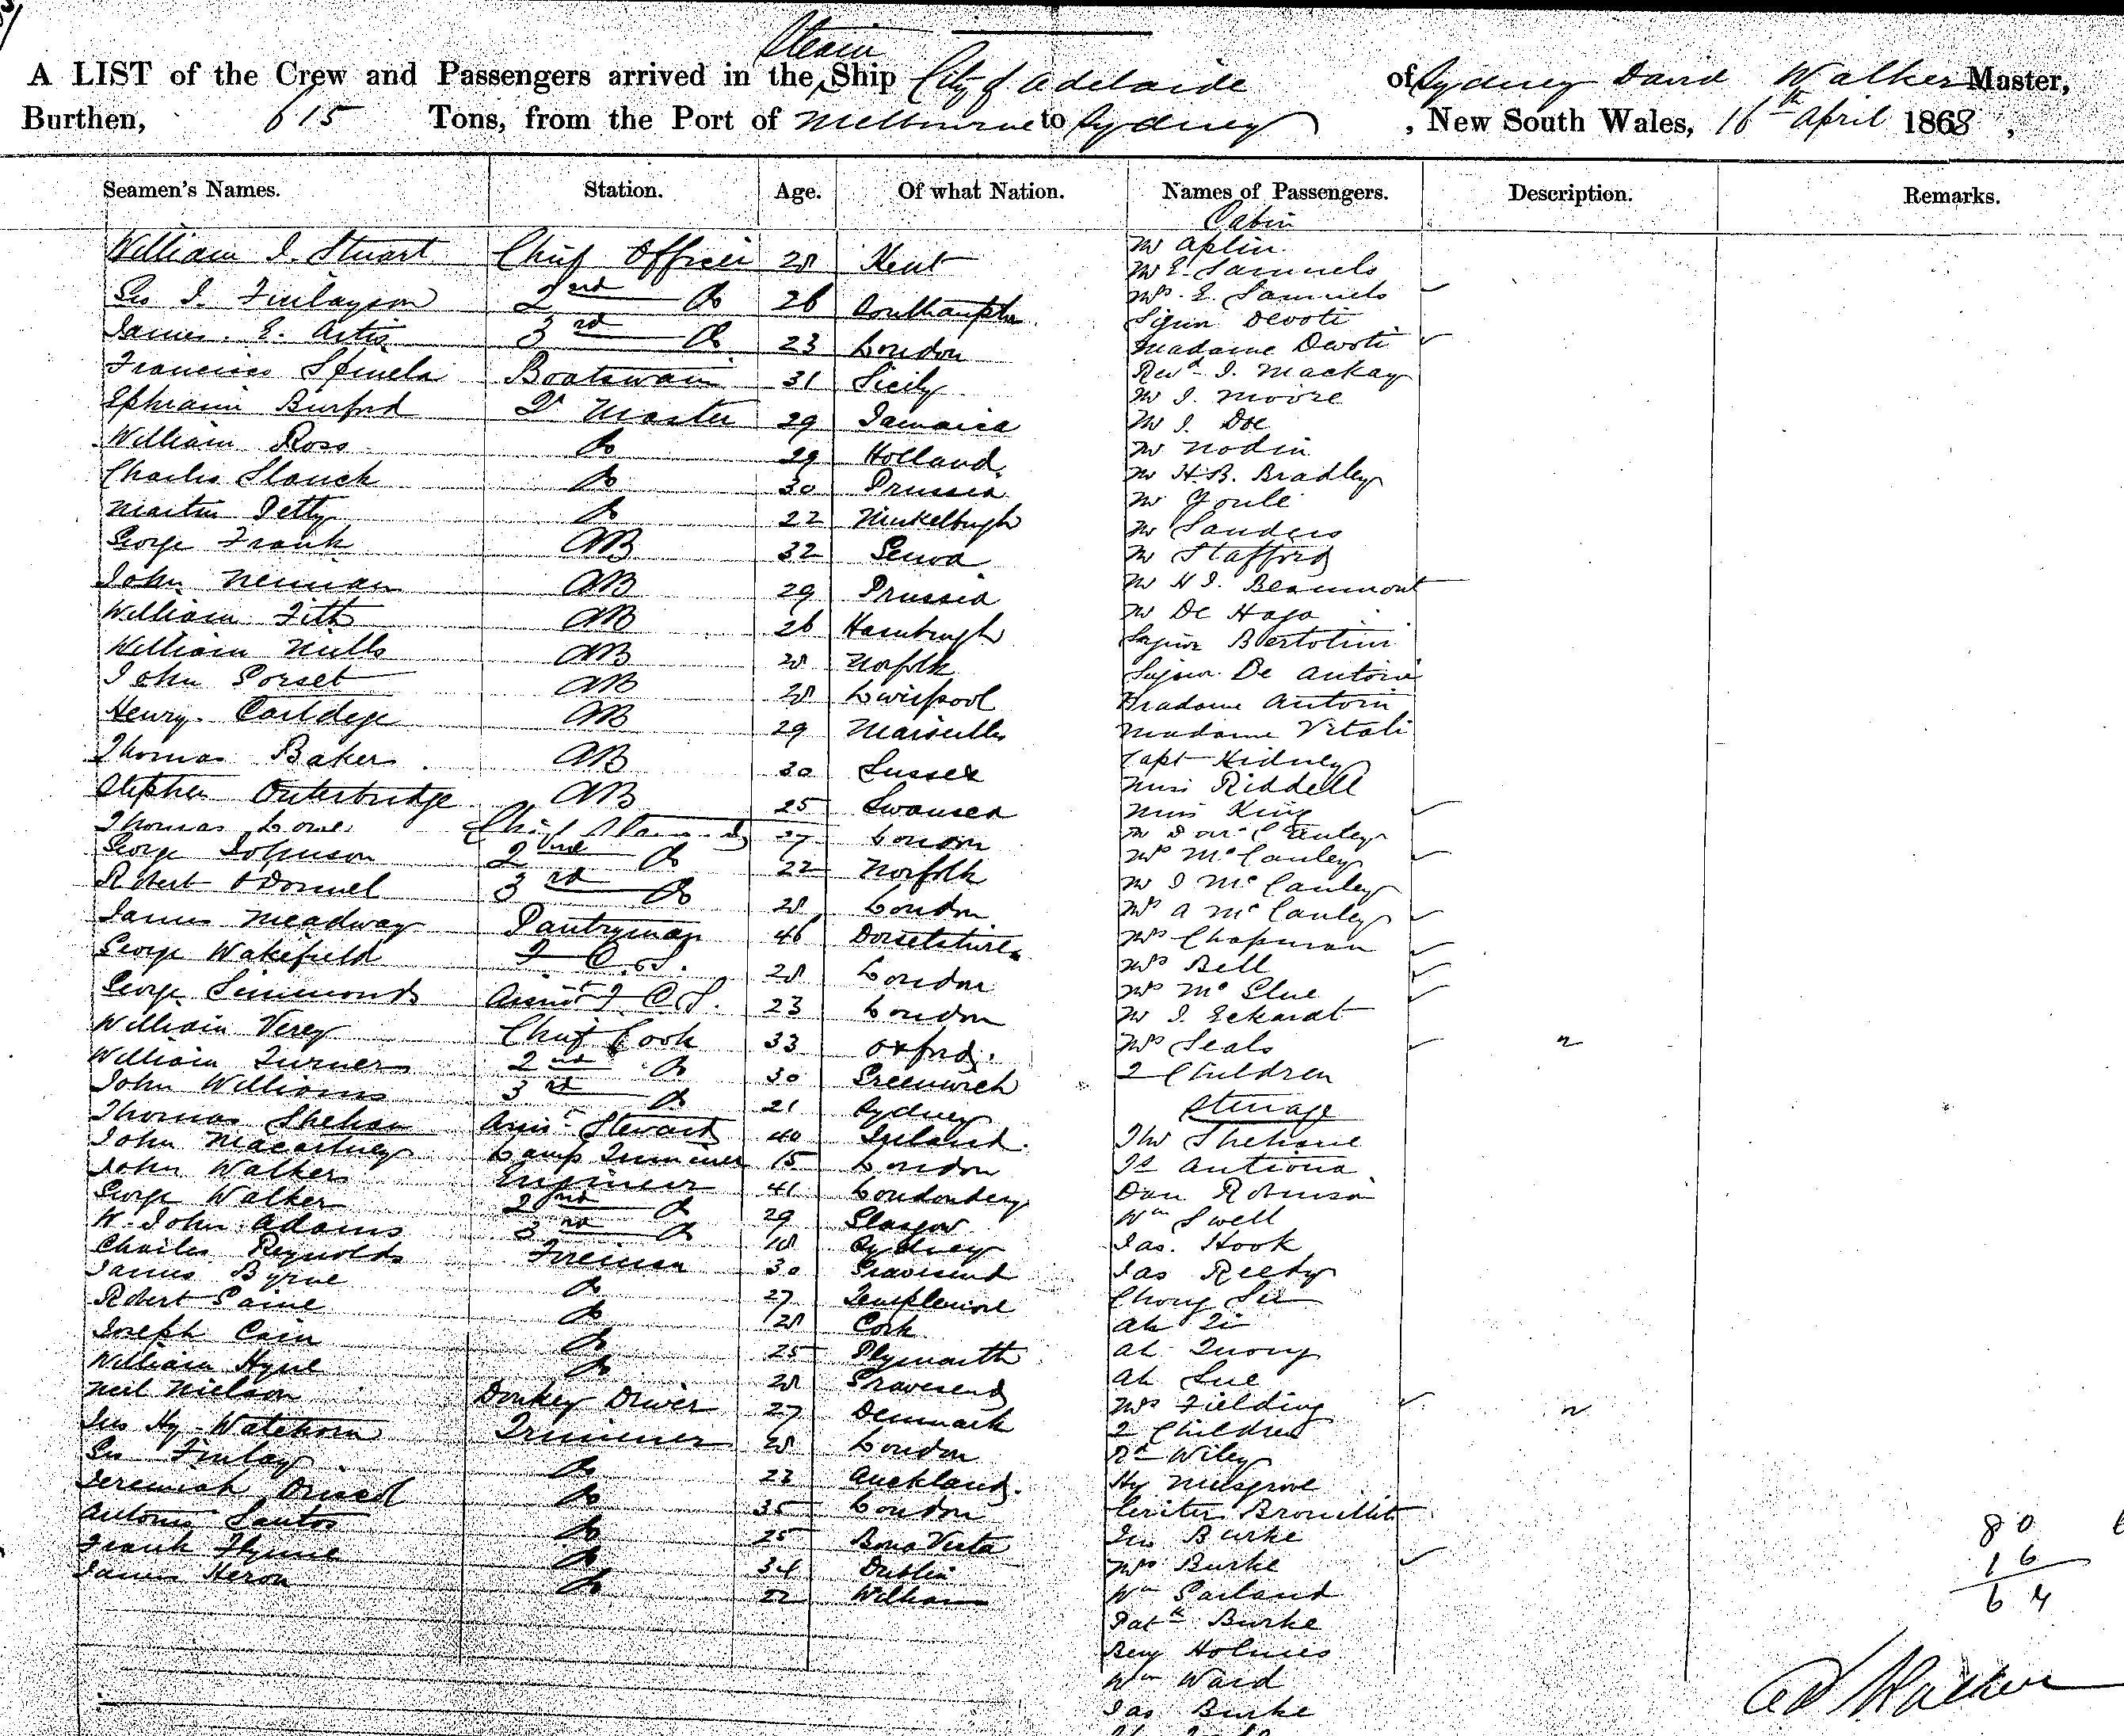 Steam
A LIST of the Crew and Passengers arrived in the Ship City of Adelaide of Sydney David Walker Master,
Burthen, 615 Tons, from the Port of Melbourne to Sydney, New South Wales, 16th April 1868,
Seamen's Names. Station. Age. Of what Nation. Names of Passengers. Description. Remarks.
Cabin
William J. Stuart Chief Officer 28 Kent
Geo J. Finlayson 2nd Do 26 Southampton
James. E. Artis 3rd Do 23 London
Francisco Boatswain 31 Sicily
Ephraim Burford Qr Master 29 Jamaica
William Ross Do 29 Holland
Charles Slauch Do 30 Prussia
Martin Petty Do 22
George Frank AB 32 Genoa
John Neuman AB 29 Prussia
William Fith AB 26 Hamburgh
William Mills AB 28 Norfolk
John Dorset AB 28 Liverpool
Henry. AB 29 Marseilles
Thomas Baker AB 30 Sussex
Stephen Outerbridge AB 25 Swansea
Thomas Lowe Chief Steward 27 London
George Johnson 2nd Do 22 Norfolk
Robert ODonnel 3rd Do 28 London
James Meadway Pantryman 46 Dorsetshire
George Wakefield F C. S. 28 London
George Simmonds Assist F C S. 23 London
William Verey Chief Cook 33 Oxford.
William Turner 2nd Do 30 Greenwich
John Williams 3rd Do 21 Sydney
Thomas Shehan Assist Steward 40 Ireland.
John Macartney Lamp Trimmer 15 London
John Walker Engineer 41 Londonderry
George Walker 2nd Do 29 Glasgow
W. John Adams 3rd Do 18 Sydney
Charles Reynolds Fireman 30 Gravesend
James Byrne Do 27 Templemore
Robert Paine Do 28 Cork
Joseph Cain Do 25 Plymouth
William Hyne Do 28 Gravesend
Neil Nielson Donkey Driver 27 Denmark
Jno Hy Watehorn Trimmer 28 London
Geo Finlay Do 23 Auckland.
Jeremiah Driscol Do 35 London
Antonio Santos Do 25 Bona Vista
Frank Flynne Do 34 Dublin
James Heron Do 22 William
Mr Aplin
Mr E. Samuels
Mrs. E. Samuels
Signor Devoti
Madame Devoti
Revd J. Mackay
Mr J. Moore
Mr J. Doe
Mr Nodin
Mr H. B. Bradley
Mr Youle
Mr Sanders
Mr Stafford
Mr H J. Beaumont
Mr De Haga
Signor Bertolini
Signor De Antoni
Madame Antoni
Madame Vitali
Capt Kidney
Miss Riddell
Miss King
Mr
Mrs McCanley
Mr J McCanley
Mrs A McCanley
Mrs Chapman
Mrs Bell
Mrs
Mr J. Eckardt
Mrs Seals 2
2 Children
Steerage
Thos Shehane
Antiona
Dan Robinson
Wm Swell
Jas. Hook
Jas Reedy
Chong See
Ah
Ah Quong
Ah Sue
Mrs Fielding 2
2 Children
Rd Wiley
Hy Musgrove
Jno Burke
Mrs Burke
Wm Garland
Patk Burke
Benj Holmes
Wm Ward
Jas Burke
80
16
64